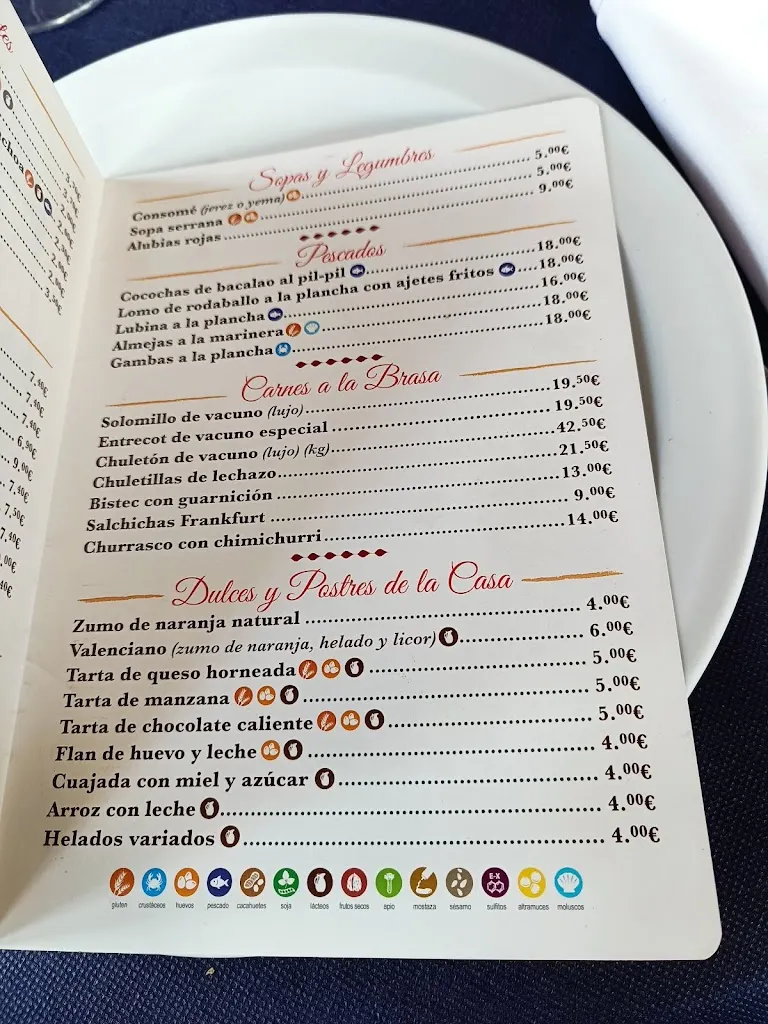 7.40€
7.40€
7.40€
6.90€
9.00€
7.40€
7.50€
7.40€
Sopas y Legumbres
Consomé (jerez o yema) 5.00€
Sopa serrana 5.00€
Alubias rojas 9.00€
Pescados
Cocochas de bacalao al pil-pil 18.00€
Lomo de rodaballo a la plancha con ajetes fritos 18.00€
Lubina a la plancha 16.00€
Almejas a la marinera 18.00€
Gambas a la plancha 18.00€
Carnes a la Brasa
Solomillo de vacuno (lujo) 19.50€
Entrecot de vacuno especial 19.50€
Chuletón de vacuno (lujo) (kg) 42.50€
Chuletillas de lechazo 21.50€
Bistec con guarnición 13.00€
Salchichas Frankfurt 9.00€
Churrasco con chimichurri 14.00€
Dulces y Postres de la Casa
Zumo de naranja natural 4.00€
Valenciano (zumo de naranja, helado y licor) 6.00€
Tarta de queso horneada 5.00€
Tarta de manzana 5.00€
Tarta de chocolate caliente 5.00€
Flan de huevo y leche 4.00€
Cuajada con miel y azúcar 4.00€
Arroz con leche 4.00€
Helados variados 4.00€
E-X
gluten crustáceos huevos pescado cacahuetes soja lácteos frutos secos apio mostaza sésamo sulfitos altramuces moluscos